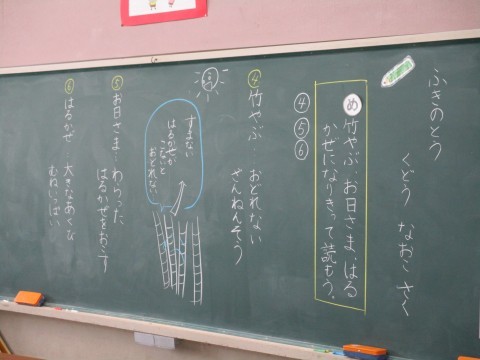 ふきのとう
くどう なおこ さく
め 竹やぶ、お日さま、はる
かぜになりきって読もう。
④
⑤
⑥
④ 竹やぶ… おどれない
ざんねんそう
すまない
はるかぜが
こないと
おどれない
⑤ お日さま… わらった
はるかぜをおこす
⑥ はるかぜ… 大きなあくび
むねいっぱい